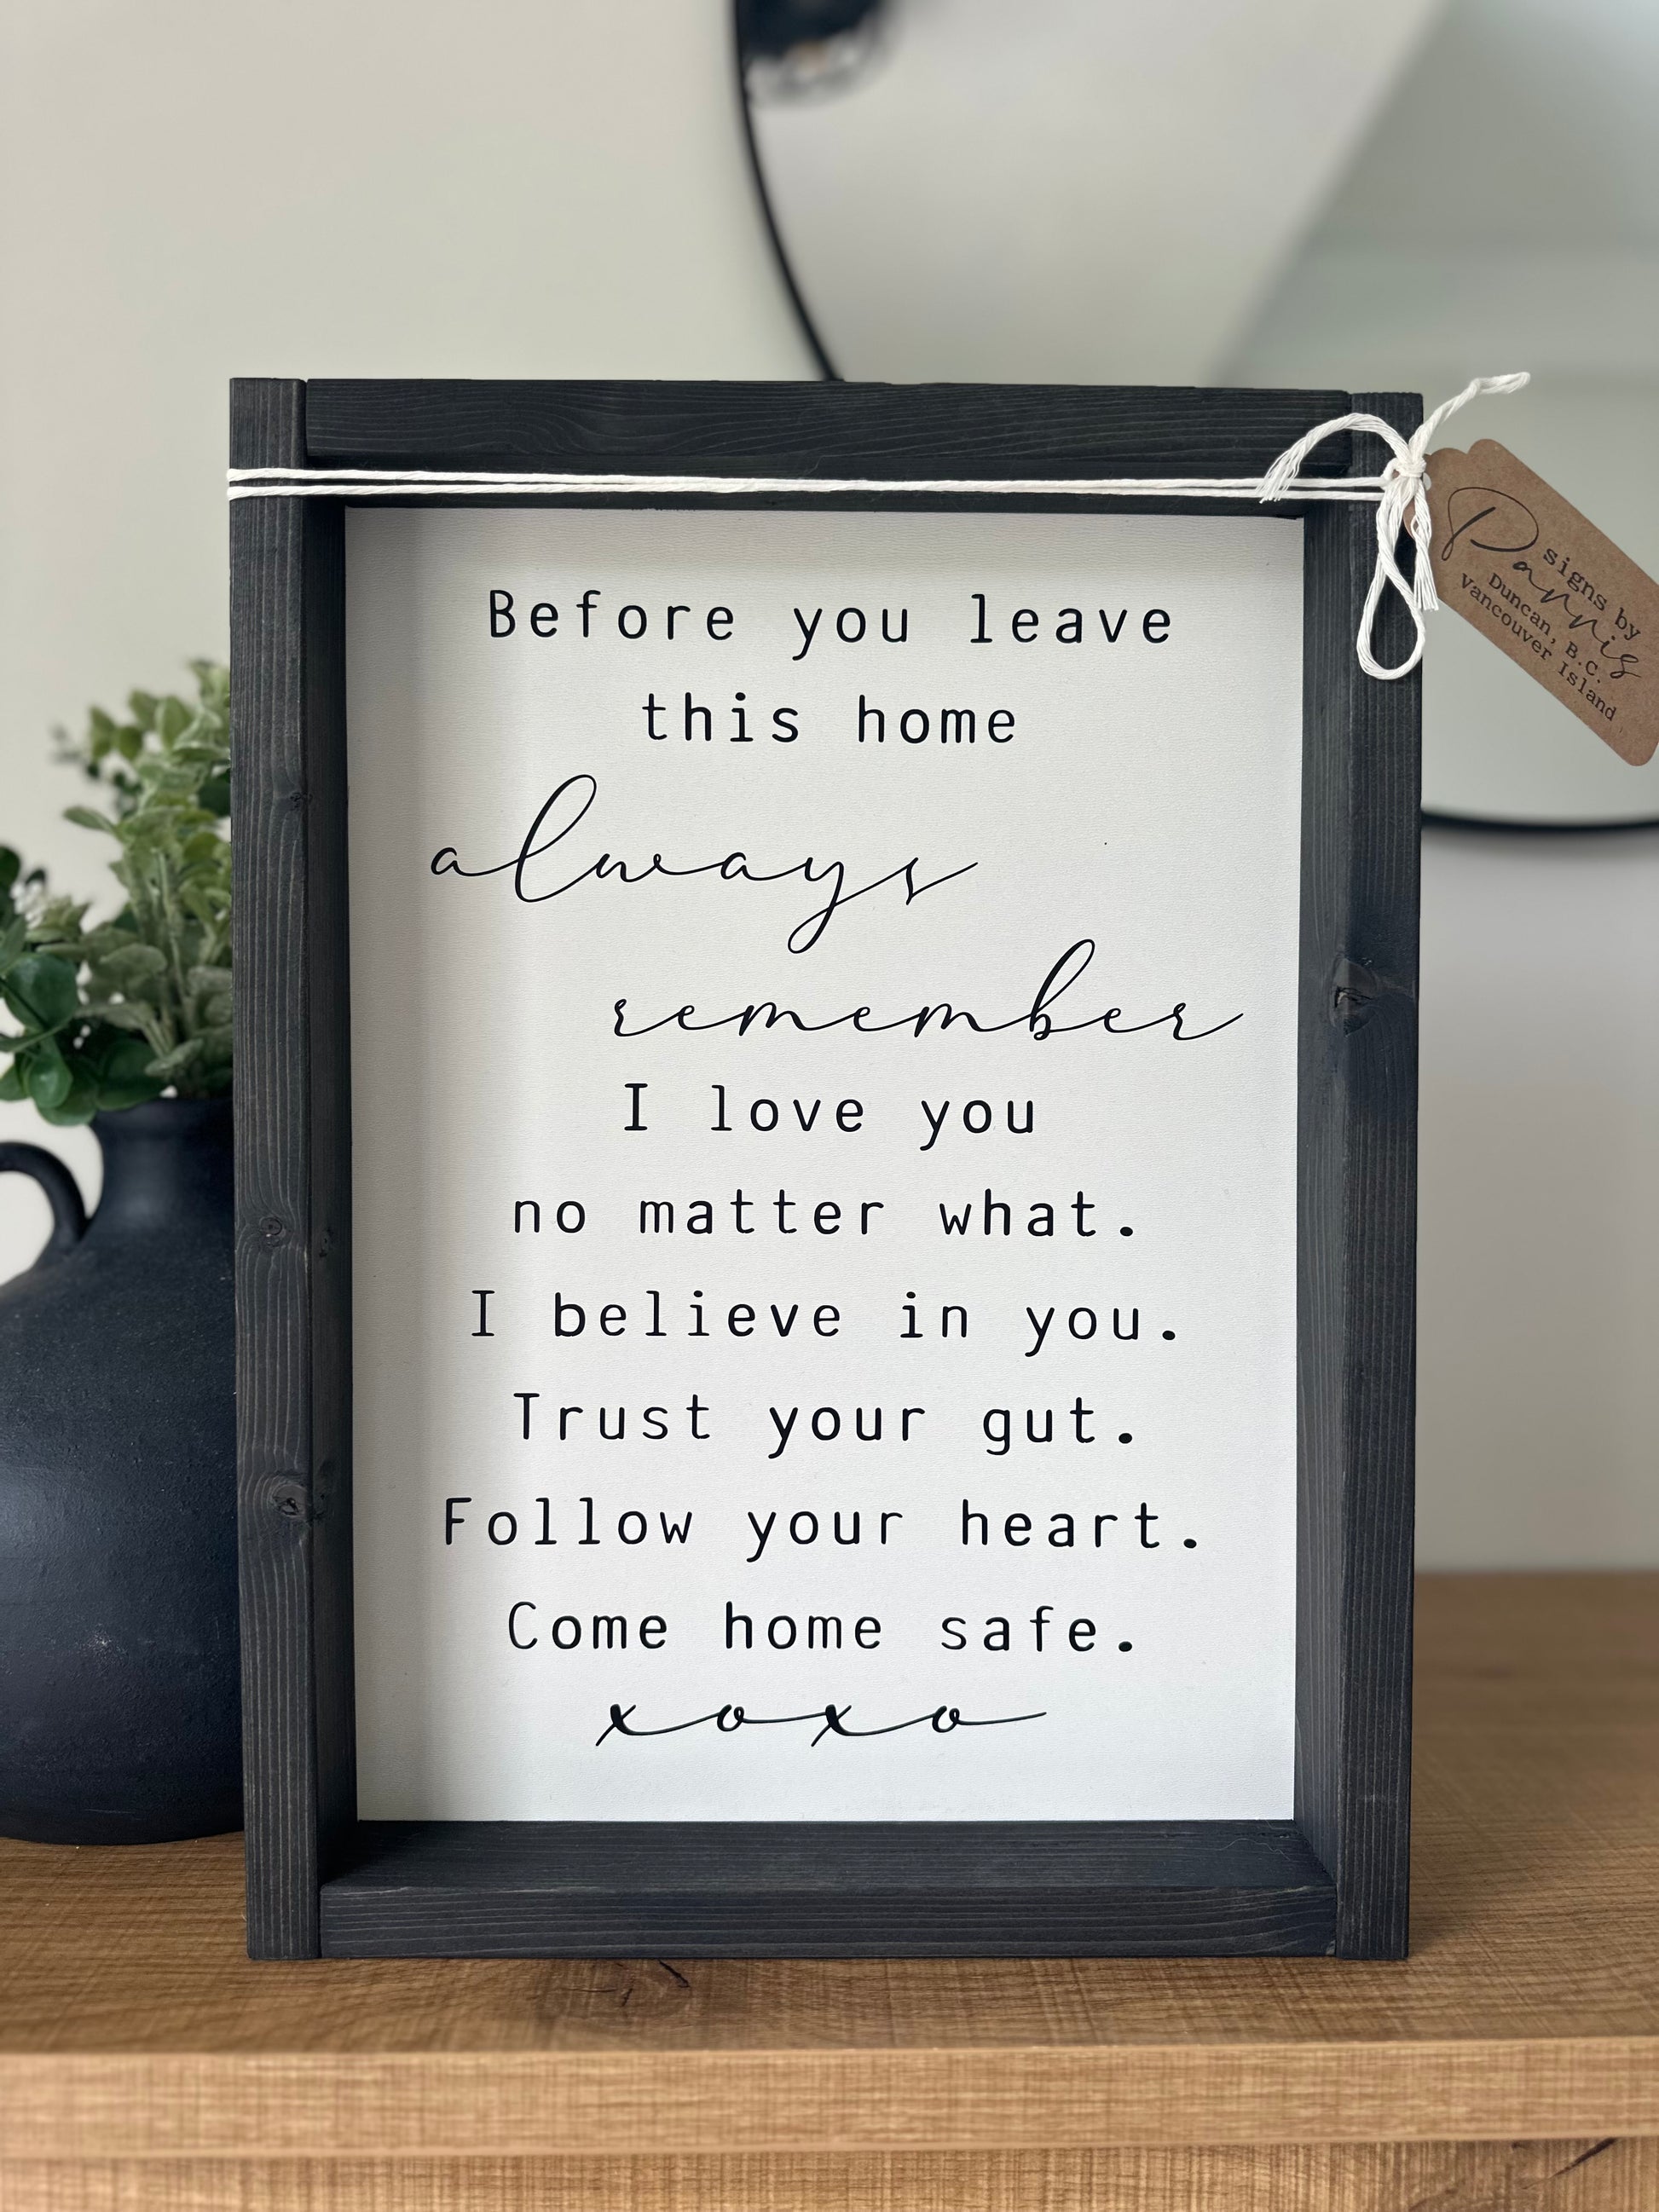 Before you leave
this home
always
remember
I love you
no matter what.
I believe in you.
Trust your gut.
Follow your heart.
Come home safe.
xoxo
signs by
Pannis
Duncan, B.C.
Vancouver Island